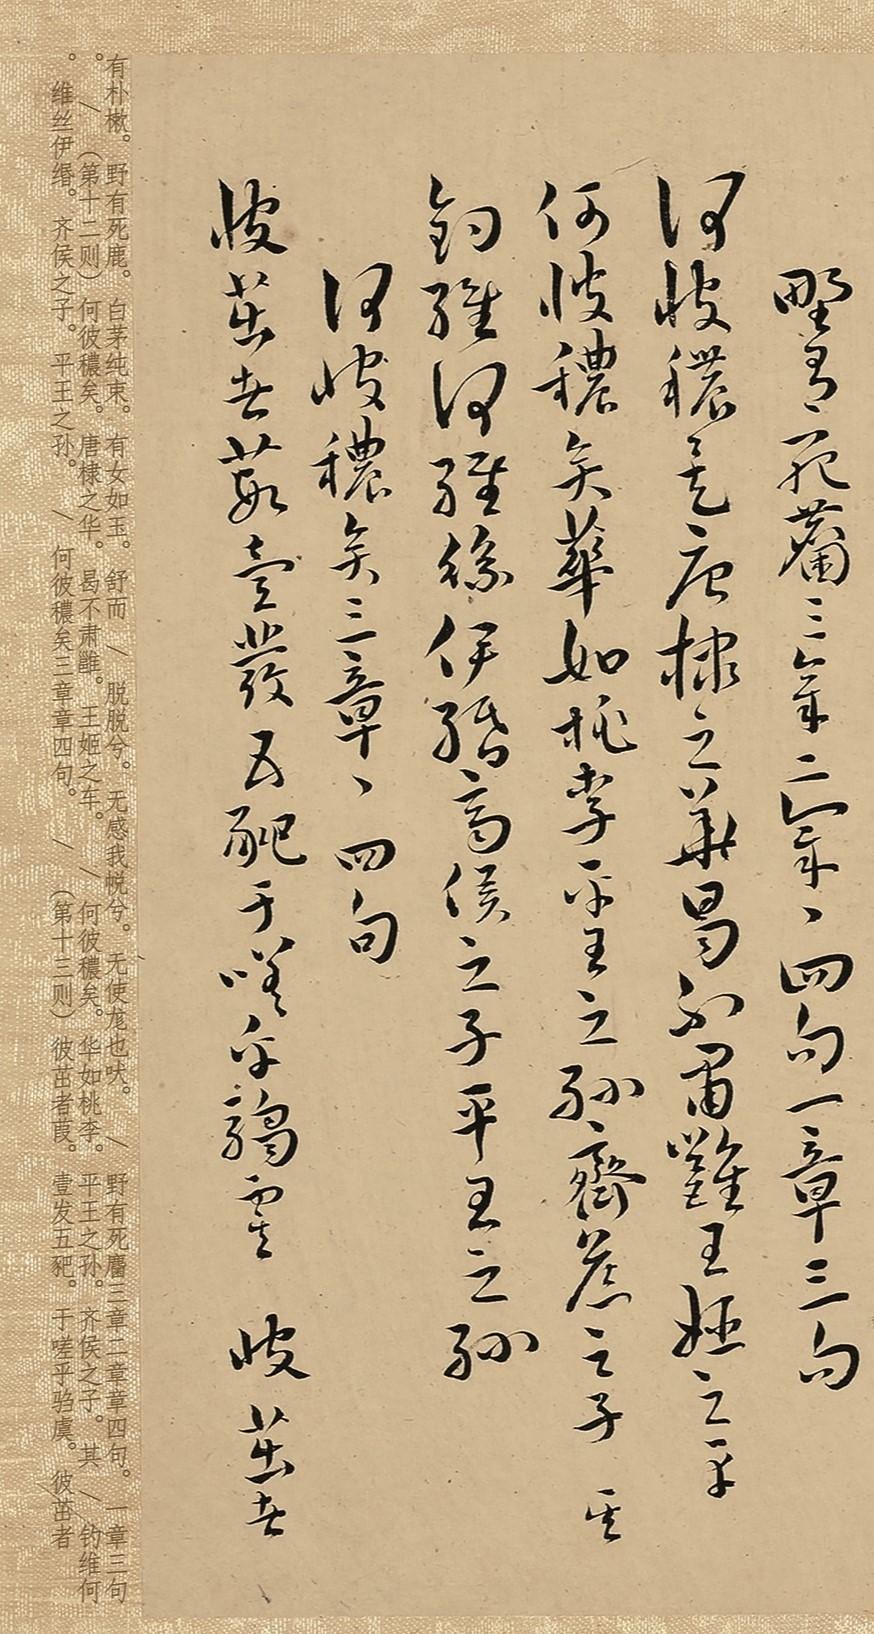 野有死麕三章二章〻四句一章三句
何彼穠矣唐棣之華曷不肅雝王姬之車
何彼穠矣華如桃李平王之孫齊侯之子其
釣維何維絲伊緡齊侯之子平王之孫
何彼穠矣三章〻四句
彼茁者葭壹發五豝于嗟乎騶虞彼茁者
有朴樕。野有死鹿。白茅纯束。有女如玉。舒而 / 脱脱兮。无感我帨兮。无使尨也吠。 / 野有死麕三章二章章四句。一章三句
。 / (第十二则) 何彼穠矣。唐棣之华。曷不肃雝。王姬之车。 / 何彼穠矣。华如桃李。平王之孙。齐侯之子。其 / 钓维何
。维丝伊缗。齐侯之子。平王之孙。 / 何彼穠矣三章章四句。 / (第十三则) 彼茁者葭。壹发五豝。于嗟乎驺虞。彼茁者